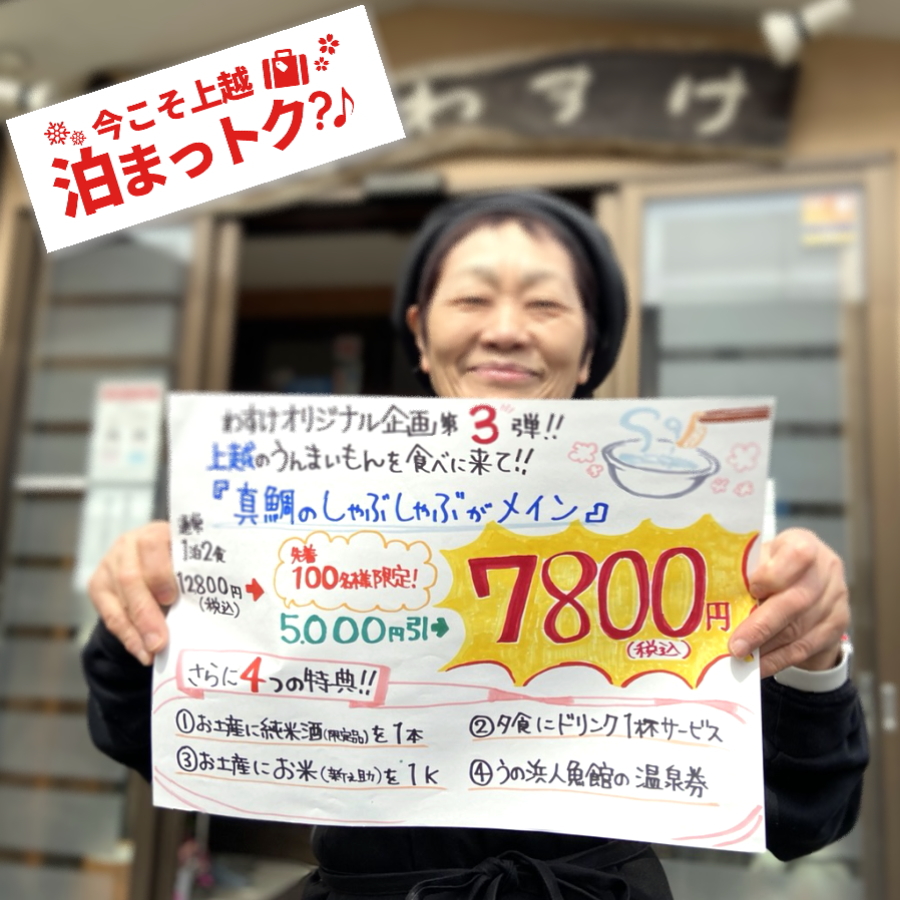 今こそ上越
泊まっトク?♪
わすけ
わすけオリジナル企画第3弾!!
上越のうんまいもんを食べに来て!!
『真鯛のしゃぶしゃぶがメイン』
通常
1泊2食
12800円
(税込)
先着
100名様限定!
5.000円引
7800円
(税込)
さらに4つの特典!!
①お土産に純米酒(限定品)を1本
②夕食にドリンク1杯サービス
③お土産にお米(新之助)を1K
④うの浜人魚館の温泉券